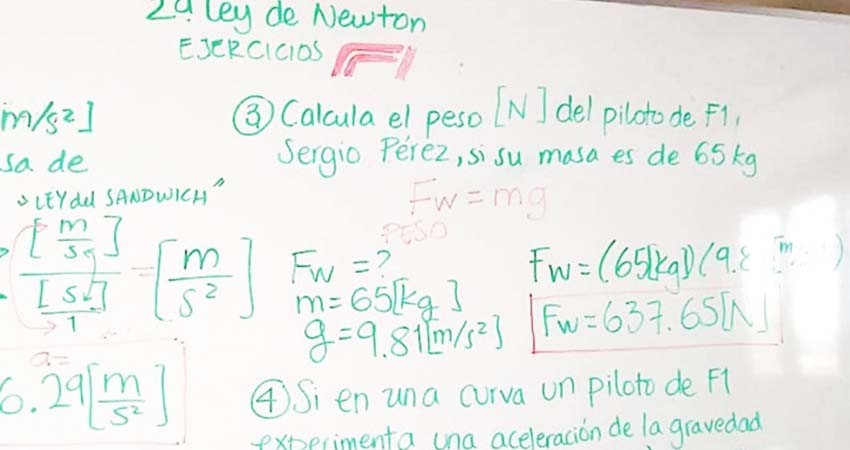 2ª Ley de Newton
EJERCICIOS F1
m/s²]
sa de
"LEY del SANDWICH"
[m/seg]
[seg]/1
= [m/s²]
a=
6.29[m/s²]
③ Calcula el peso [N] del piloto de F1,
Sergio Pérez, si su masa es de 65kg
Fw = mg
PESO
Fw = ?
m = 65[kg]
g = 9.81[m/s²]
Fw = (65[kg])(9.8 [m )
Fw = 637.65[N]
④ Si en una curva un piloto de F1
experimenta una aceleración de la gravedad